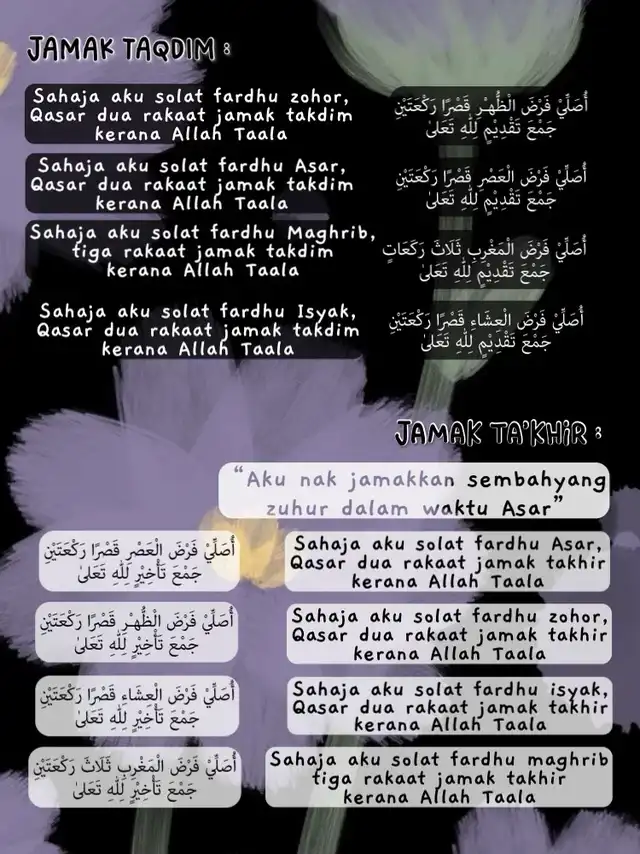 JAMAK TAQDIM :
Sahaja aku solat fardhu zohor,
Qasar dua rakaat jamak takdim
kerana Allah Taala
أُصَلِّيْ فَرْضَ الْظُّهْرِ قَصْرًا رَكْعَتَيْنِ
جَمْعَ تَقْدِيْمٍ لِلّٰهِ تَعَلىٰ
Sahaja aku solat fardhu Asar,
Qasar dua rakaat jamak takdim
kerana Allah Taala
أُصَلِّيْ فَرْضَ الْعَصْرِ قَصْرًا رَكْعَتَيْنِ
جَمْعَ تَقْدِيْمٍ لِلّٰهِ تَعَلىٰ
Sahaja aku solat fardhu Maghrib,
tiga rakaat jamak takdim
kerana Allah Taala
أُصَلِّيْ فَرْضَ الْمَغْرِبِ ثَلَاثَ رَكَعَاتٍ
جَمْعَ تَقْدِيْمٍ لِلّٰهِ تَعَلىٰ
Sahaja aku solat fardhu Isyak,
Qasar dua rakaat jamak takdim
kerana Allah Taala
أُصَلِّيْ فَرْضَ الْعِشَاءِ قَصْرًا رَكْعَتَيْنِ
جَمْعَ تَقْدِيْمٍ لِلّٰهِ تَعَلىٰ
JAMAK TA'KHIR :
“Aku nak jamakkan sembahyang
zuhur dalam waktu Asar”
أُصَلِّيْ فَرْضَ الْعَصْرِ قَصْرًا رَكْعَتَيْنِ
جَمْعَ تَأْخِيْرٍ لِلّٰهِ تَعَلىٰ
Sahaja aku solat fardhu Asar,
Qasar dua rakaat jamak takhir
kerana Allah Taala
أُصَلِّيْ فَرْضَ الْظُّهْرِ قَصْرًا رَكْعَتَيْنِ
جَمْعَ تَأْخِيْرٍ لِلّٰهِ تَعَلىٰ
Sahaja aku solat fardhu zohor,
Qasar dua rakaat jamak takhir
kerana Allah Taala
أُصَلِّيْ فَرْضَ الْعِشَاءِ قَصْرًا رَكْعَتَيْنِ
جَمْعَ تَأْخِيْرٍ لِلّٰهِ تَعَلىٰ
Sahaja aku solat fardhu isyak,
Qasar dua rakaat jamak takhir
kerana Allah Taala
أُصَلِّيْ فَرْضَ الْمَغْرِبِ ثَلَاثَ رَكْعَتَيْنِ
جَمْعَ تَأْخِيْرٍ لِلّٰهِ تَعَلىٰ
Sahaja aku solat fardhu maghrib
tiga rakaat jamak takhir
kerana Allah Taala